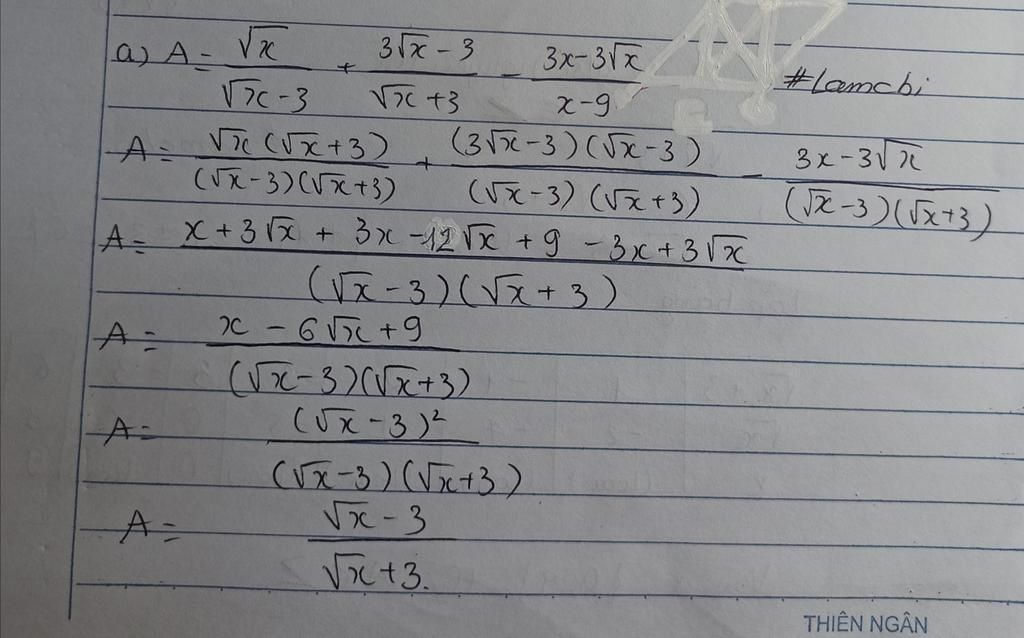 a) A = √x/(√x - 3) + (3√x - 3)/(√x + 3) - (3x - 3√x)/(x - 9) #Lamchi
A = √x(√x + 3)/((√x - 3)(√x + 3)) + (3√x - 3)(√x - 3)/((√x - 3)(√x + 3)) - (3x - 3√x)/((√x - 3)(√x + 3))
A = (x + 3√x + 3x - 12√x + 9 - 3x + 3√x)/((√x - 3)(√x + 3))
A = (x - 6√x + 9)/((√x - 3)(√x + 3))
A = (√x - 3)²/((√x - 3)(√x + 3))
A = (√x - 3)/(√x + 3).
THIÊN NGÂN